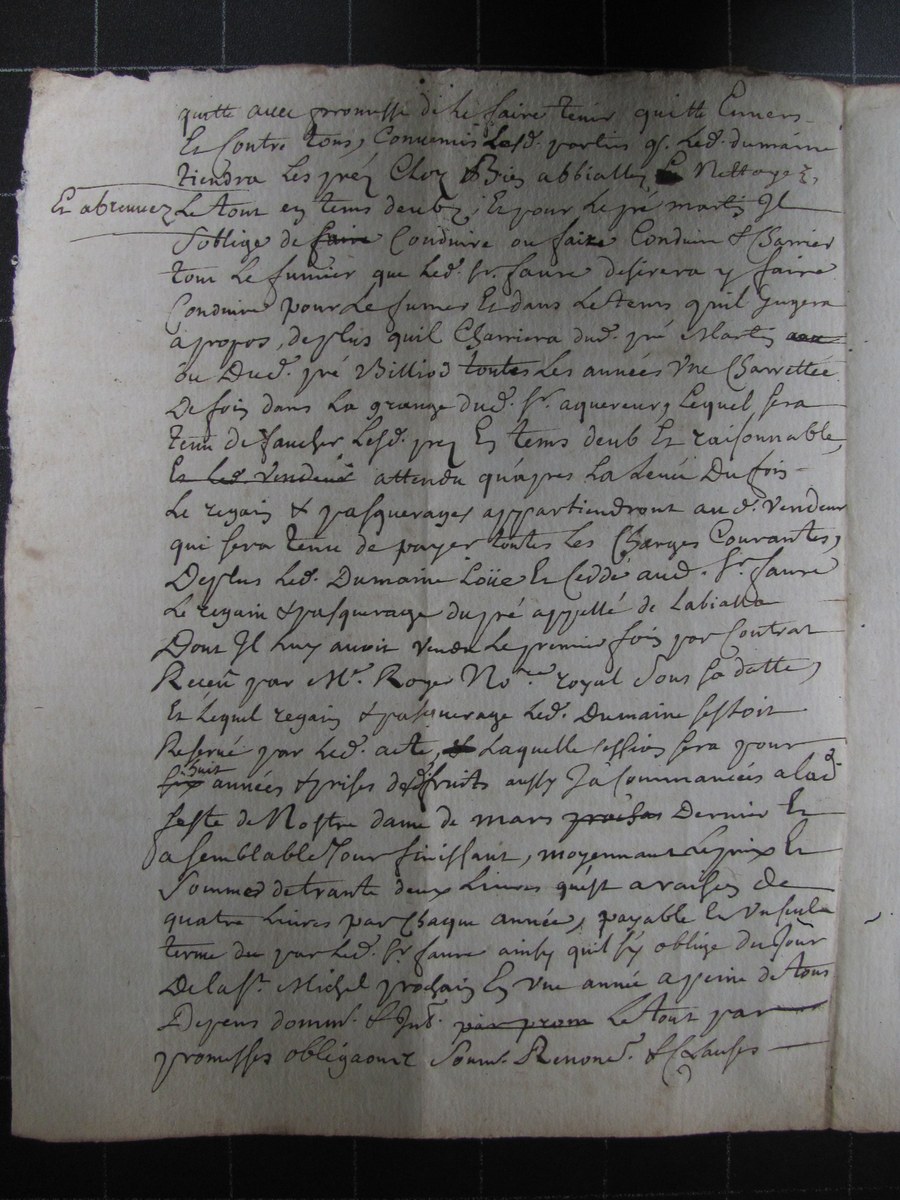 quitte avec promesse de le faire tenir quitte Envers
Et Contre tous, Convenus Lesd. parties q. Led. dumaine
tiendra Les préz Cloz Biés abbiallez Et Nettoyez,
Et abreuvez Le tout en tems deubz; Et pour Le pré martin Il
soblige de faire Conduire ou faire Conduire & Charrier
tout Le fumier que Led. Sr. faure desirera y faire
Conduire pour Le fumer Et dans Le tems quil Jugera
apropos, deplus quil Charriera dud. pré Martin
ou Dud. pré Billiod toutes Les années Une Charrettée
De foin dans La grange dud. Sr. aquereur, Lequel sera
tenu de faucher Lesd. prez En tems deub Et raisonnable,
Et Led. Vendeur attendu quapres La Levée Du foin
Le regain & pasquerages appartiendront aud. Vendeur
qui sera tenu de payer toutes Les Charges Courantes,
Deplus Led. Dumaine Loüe Et Cedde aud. Sr. faure
Le regain & pasquerage du pré appellé de Labialla
Dont Il Luy avoit Vendu Le premier foin par Contrat
Receu par Me. Roger Nore. royal Sous sa datte,
Et Lequel regain & pasquerage Led. Dumaine sestoit
Reservé par Led. acte, & Laquelle cession sera pour
six huit années & prises de fruits aussy Ja Commancées a Lad.
feste de Nostre dame de mars prochain Dernier Et
a semblable Jour finissant, moyennant Le prix Et
Somme de trante deux Livres quest a raison De
quatre Livres par Chaque année, payable En Un seul
terme du par Led. Sr. faure ainsy quil sy oblige du Jour
De la St. Michel prochain En Une année a peine de tous
Depens domm. & Int. par prom Le tout par
promesses obligaons Soum. Renond. & Clauses